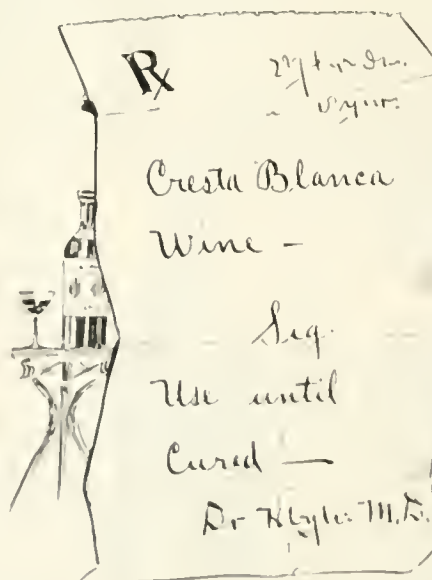 Rx
Cresta Blanca
Wine –
Sig.
Use until
Cured —
Dr M.D.